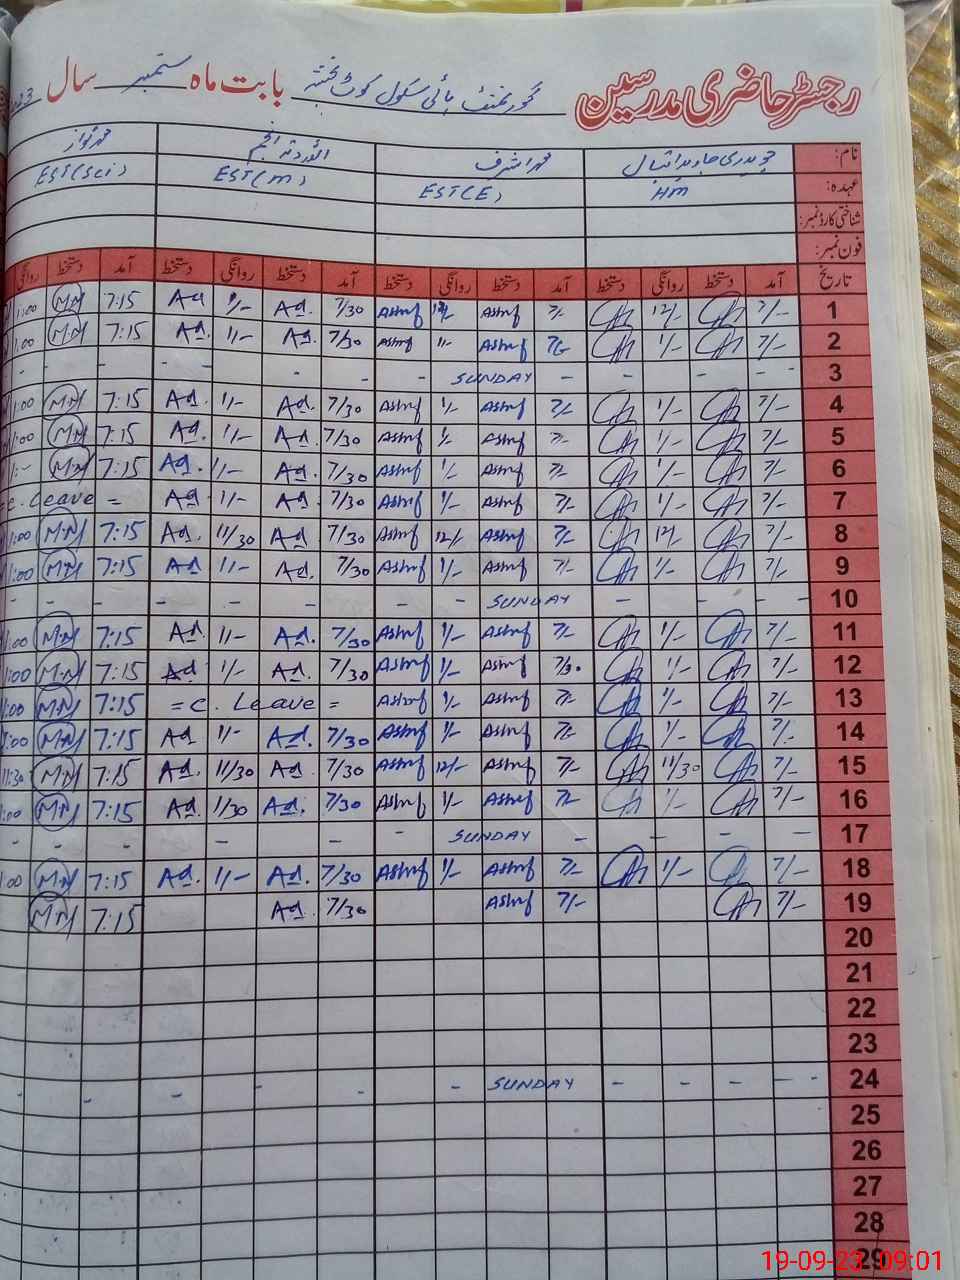 رجسٹر حاضری مدرسین گورنمنٹ ہائی سکول کوٹ بابت ماہ ستمبر سال
نام: چوہدری جاوید اقبال محمد اشرف محمد نواز
عہدہ: HM EST(E) EST(M) EST(Sci)
شناختی کارڈ نمبر:
فون نمبر:
تاریخ آمد دستخط روانگی دستخط آمد دستخط روانگی دستخط آمد دستخط روانگی دستخط آمد دستخط روانگی
1 7/- 12/- 7/- Ashraf Ashraf 7/30 Ad 1/- Ad 7:15 M.N 1:00
2 7/- 1/- Ashraf 1/- Ashraf 7/30 Ad. 1/- Ad. 7:15 M.N 1:00
3 SUNDAY
4 7/- 1/- 7/- Ashraf 1/- Ashraf 7/30 Ad. 1/- Ad. 7:15 M.N 1:00
5 7/- 1/- 7/- Ashraf 1/- Ashraf 7/30 Ad. 1/- Ad. 7:15 M.N 1:00
6 7/- 1/- 7/- Ashraf 1/- Ashraf 7/30 Ad. 1/- Ad. 7:15 M.N 1:-
7 7/- 1/- 7/- Ashraf 1/- Ashraf 7/30 Ad 1/- Ad = C. Leave =
8 7/- 12/- 7/- Ashraf 12/- Ashraf 7/30 Ad 11/30 Ad. 7:15 M.N 1:00
9 7/- 1/- 7/- Ashraf 1/- Ashraf 7/30 Ad. 1/- Ad 7:15 M.N 1:00
10 SUNDAY
11 7/- 1/- 7/- Ashraf 1/- Ashraf 7/30 Ad. 1/- Ad. 7:15 M.N 1:00
12 7/- 1/- 7/30 Ashraf 1/- Ashraf 7/30 Ad. 1/- Ad 7:15 M.N 1:00
13 7/- 1/- 7/- Ashraf 1/- Ashraf = C. Leave = 7:15 M.N 1:00
14 7/- 1/- 7/- Ashraf 1/- Ashraf 7/30 Ad. 1/- Ad 7:15 M.N 1:00
15 7/- 11/30 7/- Ashraf 12/- Ashraf 7/30 Ad. 11/30 Ad. 7:15 M.N 11:30
16 7/- 1/- 7/- Ashraf 1/- Ashraf 7/30 Ad. 1/30 Ad. 7:15 M.N 1:00
17 SUNDAY
18 7/- 1/- 7/- Ashraf 1/- Ashraf 7/30 Ad. 1/- Ad. 7:15 M.N 1:00
19 7/- 7/- Ashraf 7/30 Ad. 7:15 M.N
20
21
22
23
24 SUNDAY
25
26
27
28
29
19-09-23 09:01